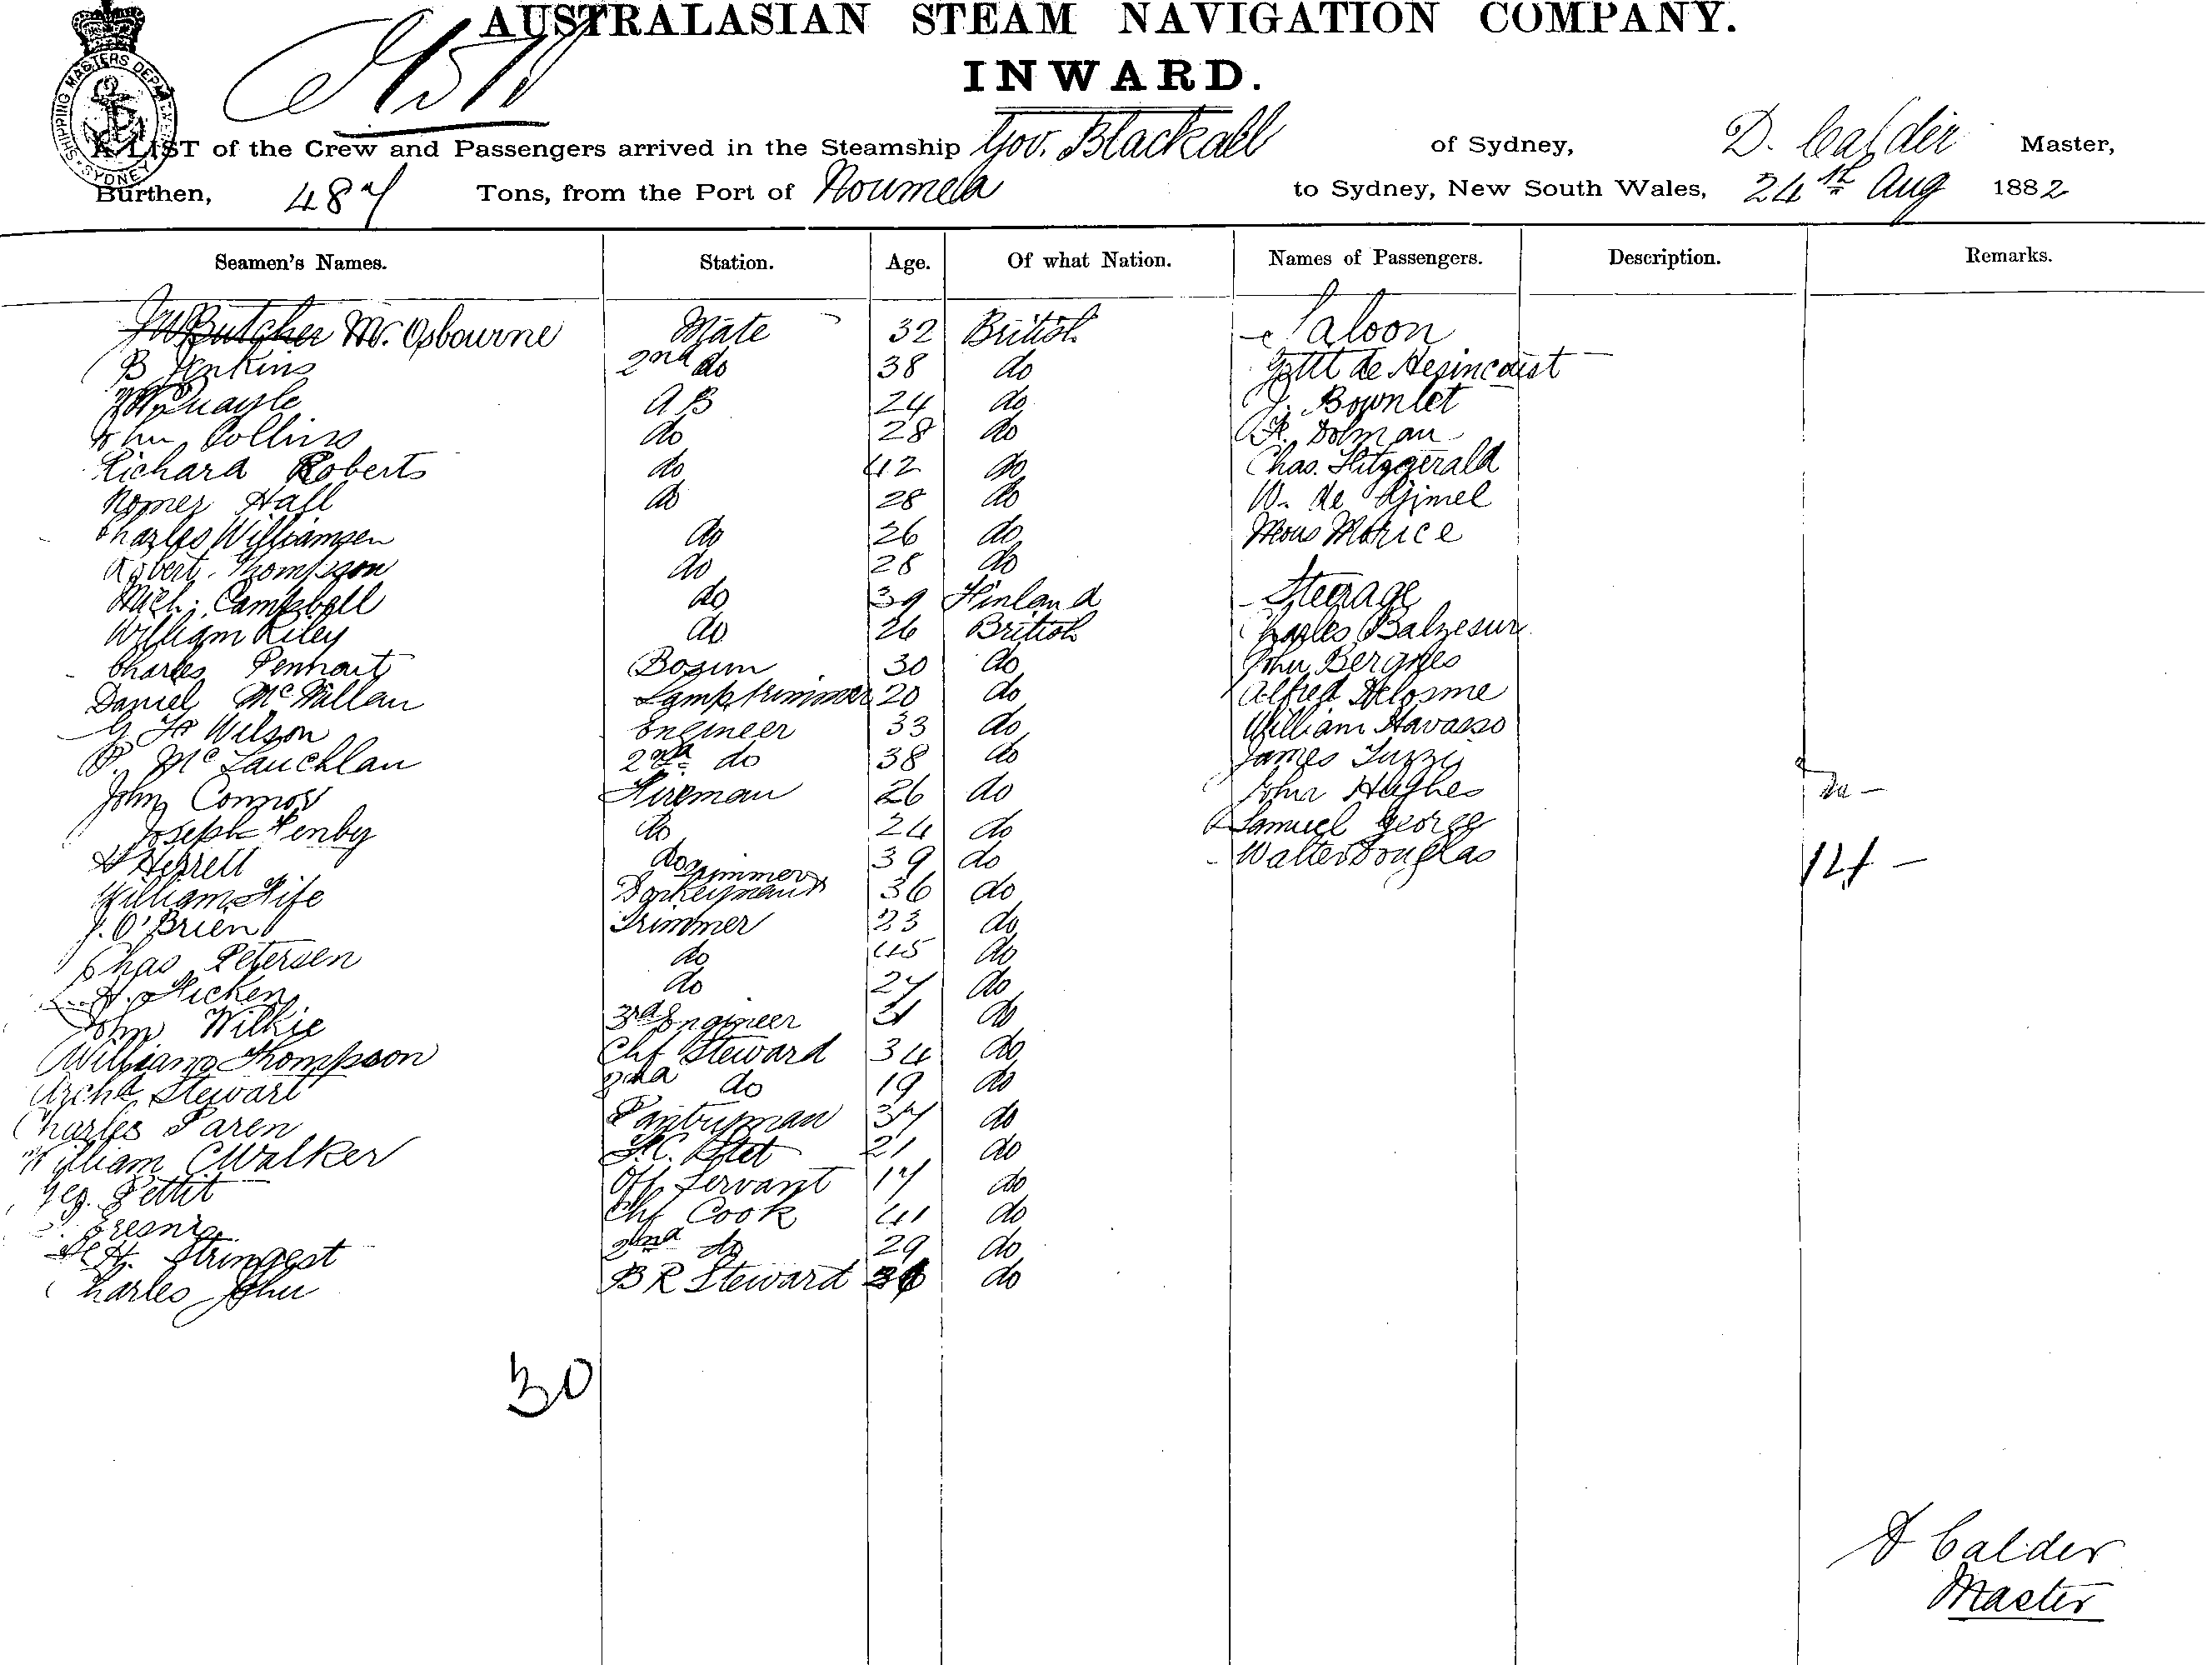 AUSTRALASIAN STEAM NAVIGATION COMPANY.
INWARD.
SHIPPING MASTERS DEPARTMENT SYDNEY
A LIST of the Crew and Passengers arrived in the Steamship Gov. Blackall of Sydney, D. Calder Master,
Burthen, 487 Tons, from the Port of Noumea to Sydney, New South Wales, 24th Aug 1882
Seamen's Names. Station. Age. Of what Nation. Names of Passengers. Description. Remarks.
Butcher Mc. Osbourne Mate 32 British Saloon
B Jenkins 2nd do 38 do de
Quayle A B 24 do J.
John Collins do 28 do Dolman
Richard Roberts do 42 do Chas. Fitzgerald
Homer Hall do 28 do W. de
Charles Williamsen do 26 do Mons Morice
Robert Thompson do 28 do
Mich. Campbell do 39 Finland Steerage
William Riley do 26 British Charles Balzesur
Charles Pennart Bosun 30 do John Bergnes
Daniel McMillan Lamptrimmer 20 do Alfred Delosme
G Wilson Engineer 33 do William Havasso
P. McLauchlan 2nd do 38 do James Tuzzi
John Connor Fireman 26 do John Hughes
Joseph Penby do 24 do Samuel George
Herrell do 39 do Walter Douglas
William Fife Donkeyman 36 do
J. O'Brien Trimmer 23 do
Chas Petersen do 45 do
Hicken do 27 do
John Wilkie 3rd Engineer 21 do
William Thompson Chf Steward 34 do
Archd Stewart 2nd do 19 do
Charles Paren Pantryman 37 do
William C Walker 21 do
Geo. Pettit Off Servant 17 do
Chf Cook 41 do
H. Stringest 2nd do 29 do
Charles John B R Steward do
14
30
D Calder
Master